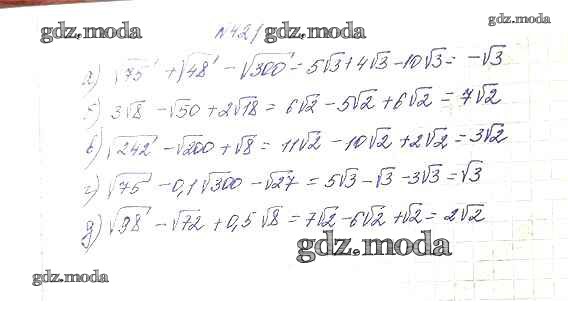 N421
gdz.moda gdz.moda gdz.moda
а) √75 + √48 - √300 = 5√3 + 4√3 - 10√3 = -√3
б) 3√8 - √50 + 2√18 = 6√2 - 5√2 + 6√2 = 7√2
в) √242 - √200 + √8 = 11√2 - 10√2 + 2√2 = 3√2
г) √75 - 0,1√300 - √27 = 5√3 - √3 - 3√3 = √3
д) √98 - √72 + 0,5√8 = 7√2 - 6√2 + √2 = 2√2
gdz.moda
gdz.moda